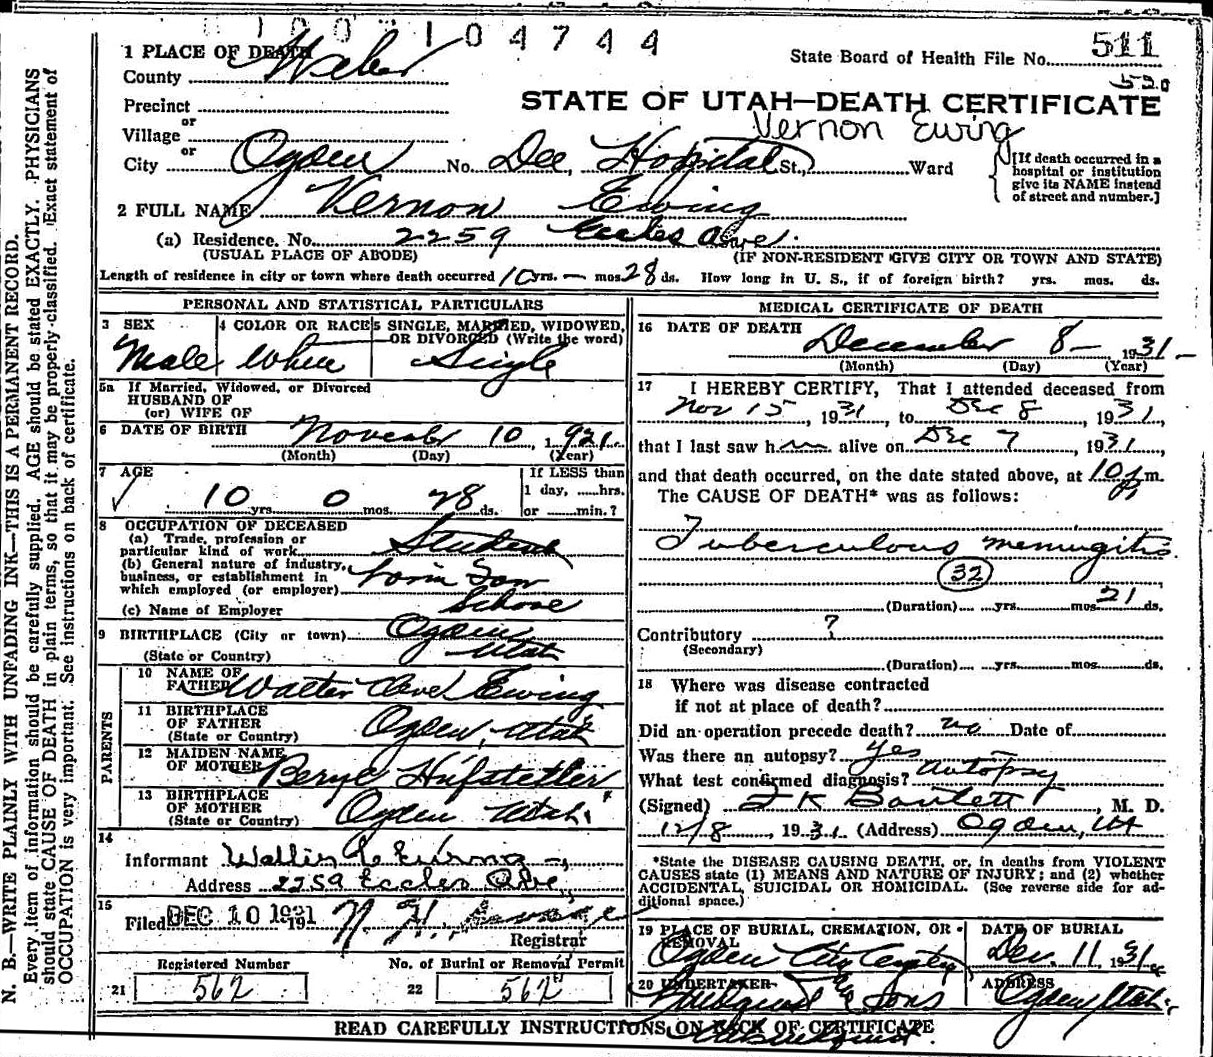 104744
1 PLACE OF DEATH
State Board of Health File No. 511
County Weber
530
Precinct
STATE OF UTAH—DEATH CERTIFICATE
or
Village
Vernon Ewing
or
City Ogden No. Dee Hospital St., Ward
[If death occurred in a hospital or institution give its NAME instead of street and number.]
2 FULL NAME Vernon Ewing
(a) Residence. No. 2259 Eccles Ave.
(USUAL PLACE OF ABODE) (IF NON-RESIDENT GIVE CITY OR TOWN AND STATE)
Length of residence in city or town where death occurred 10 yrs. — mos. 28 ds. How long in U. S., if of foreign birth? yrs. mos. ds.
PERSONAL AND STATISTICAL PARTICULARS
3 SEX 4 COLOR OR RACE 5 SINGLE, MARRIED, WIDOWED, OR DIVORCED (Write the word)
Male White Single
5a If Married, Widowed, or Divorced
HUSBAND OF
(or) WIFE OF
6 DATE OF BIRTH November 10, 1921
(Month) (Day) (Year)
7 AGE If LESS than
1 day, ......hrs.
10 yrs. 0 mos. 28 ds. or ......min.?
8 OCCUPATION OF DECEASED
(a) Trade, profession or
particular kind of work Student
(b) General nature of industry,
business, or establishment in
which employed (or employer)
School
(c) Name of Employer
9 BIRTHPLACE (City or town) Ogden
(State or Country) Utah
PARENTS
10 NAME OF
FATHER Walter Ewing
11 BIRTHPLACE
OF FATHER
(State or Country) Ogden, Utah
12 MAIDEN NAME
OF MOTHER Beryl Hufstetler
13 BIRTHPLACE
OF MOTHER
(State or Country) Ogden Utah
14
Informant
Address 2259 Eccles Ave,
15
Filed DEC 10 1931 191
Registrar
Registered Number No. of Burial or Removal Permit
21 562 22 562
MEDICAL CERTIFICATE OF DEATH
16 DATE OF DEATH
December 8— 1931—
(Month) (Day) (Year)
17 I HEREBY CERTIFY, That I attended deceased from
Nov 15, 1931, to Dec 8, 1931,
that I last saw him alive on Dec 7, 1931,
and that death occurred, on the date stated above, at 10 m.
The CAUSE OF DEATH* was as follows:
Tuberculous meningitis
32
(Duration) yrs. mos. 21 ds.
Contributory ?
(Secondary)
(Duration) yrs. mos. ds.
18 Where was disease contracted
if not at place of death?
Did an operation precede death? no Date of
Was there an autopsy? yes
What test confirmed diagnosis? autopsy
(Signed) Bartlett, M. D.
12/8, 1931 (Address) Ogden, Ut
*State the DISEASE CAUSING DEATH, or, in deaths from VIOLENT
CAUSES state (1) MEANS AND NATURE OF INJURY; and (2) whether
ACCIDENTAL, SUICIDAL OR HOMICIDAL. (See reverse side for ad-
ditional space.)
19 PLACE OF BURIAL, CREMATION, OR REMOVAL DATE OF BURIAL
Ogden City Cemetery Dec. 11 1931
20 UNDERTAKER ADDRESS
Lindquist & Sons Ogden Utah
READ CAREFULLY INSTRUCTIONS ON BACK OF CERTIFICATE
N. B.—WRITE PLAINLY WITH UNFADING INK—THIS IS A PERMANENT RECORD.
Every item of information should be carefully supplied. AGE should be stated EXACTLY. PHYSICIANS
should state CAUSE OF DEATH in plain terms, so that it may be properly classified. Exact statement of
OCCUPATION is very important. See instructions on back of certificate.